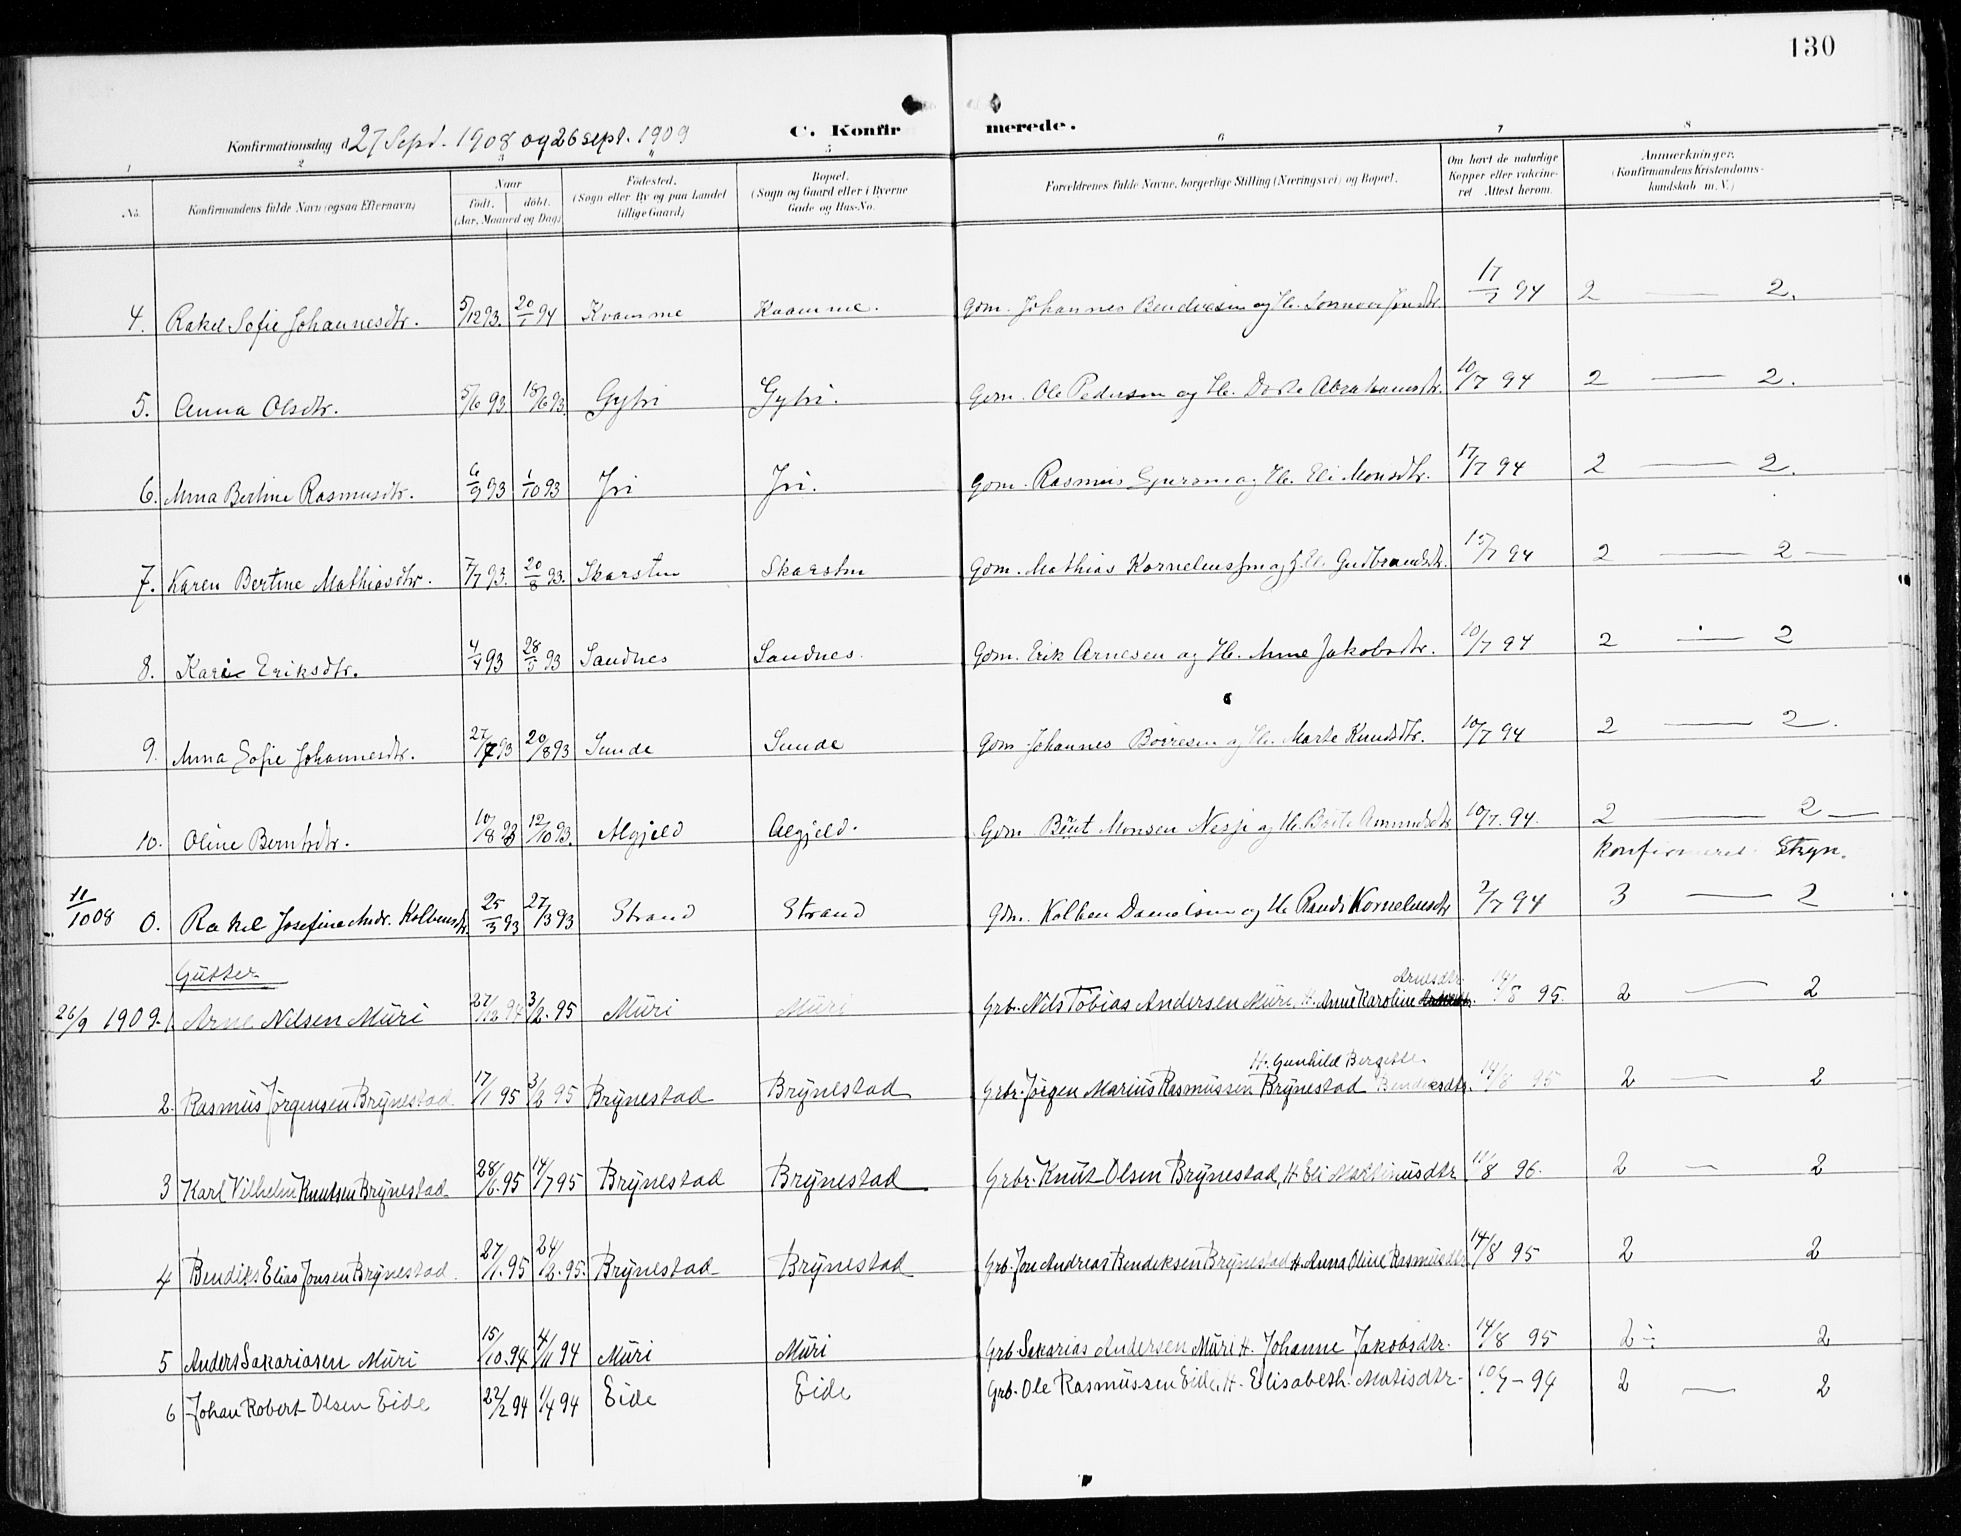 130
C. Konfirmerede.
Konfirmationsdag d 27 Sept. 1908 og 26 sept. 1909
1 2 3 4 5 6 7 8
No. Konfirmandens fulde Navn (ogsaa Efternavn) Naar født. døbt. (Aar, Maaned og Dag) Fødested. (Sogn eller By og paa Landet tillige Gaard) Bopæl. (Sogn og Gaard eller i Byerne Gade og Hus-No. Forældrenes fulde Navne, borgerlige Stilling (Næringsvei) og Bopæl. Om havt de naturlige Kopper eller vakcineret. Attest herom. Anmærkninger. (Konfirmandens Kristendomskundskab m. V.)
4. Rakel Sofie Johannesdtr. 5/12 93. 20/1 94 Kvamme Kvamme. Gdm. Johannes og H. 17/7 94 2 — 2.
5. Anna Olsdtr. 5/6 93 18/6 93. Gytri Gytri. Gdm. Ole Pedersen og H. Dorte Abrahamsdtr. 10/7 94 2 — 2.
6. Anna Bertine Rasmusdtr. 6/9 93 1/10 93 Iri Iri. Gdm. Rasmus og H. Eli Monsdtr. 17/7 94 2 — 2.
7. Karen Bertine Mathiasdtr. 7/7 93. 20/8 93. Skarsten Skarsten Gdm. Mathias Korneliussen og H. Gudbrandsdtr. 15/7 94 2 — 2 —
8. Kari Eriksdtr. 4/4 93 28/5 93 Sandnes Sandnes. Gdm. Erik Arnesen og H. Anne Jakobsdtr. 10/7 94 2 — 2
9. Anna Sofie Johannesdtr. 27/7 93 20/8 93 Sunde Sunde Gdm. Johannes og H. Marte Knudsdtr. 10/7 94 2 — 2.
10. Oline Berntsdtr. 10/8 93 12/10 93. Algjeld Algjeld. Gdm Bernt Monsen Nesje og H. 10/7. 94. 2 — 2 —
konfirmeret Stryn.
11/10 08 0. Rakel Josefine Andr. Kolbensdtr 25/3 93 27/3 93 Strand Strand Gdm. Kolben Danielsen og H. Randi Kornelinsdtr 2/7 94 3 — 2
Gutter
26/9 1909. 1. Arne Nilsen Muri 27/12 94 3/2. 95 Muri Muri Grb. Nils Tobias Andersen Muri, H. Anne Karoline Arnesdtr. 14/8 95. 2 — 2
H. Gunhild Bergitte
2. Rasmus Jørgensen Brynestad 17/1 95 3/2 95 Brynestad Brynestad Grbr. Jørgen Marius Rasmussen Brynestad Bendiksdtr. 14/8 95 2 — 2
3 Karl Vilhelm Knutsen Brynestad 28/6. 95 14/7 95 Brynestad Brynestad Grbr. Knut Olsen Brynestad, H Eli Martinusdtr 11/8 96. 2 — 2
4 Bendiks Elias Jonsen Brynestad 27/1. 95 24/2. 95. Brynestad Brynestad Grb. Jon Andreas Bendiksen Brynestad H. Anna Oline Rasmusdtr 14/8 95 2 2
5 Anders Sakariasen Muri 15/10. 94 4/11 94 Muri Muri Grb Sakarias Andersen Muri H. Johanne Jakobsdtr. 14/8 95 2 ÷ 2
6 Johan Robert Olsen Eide 22/2 94 1/4 94 Eide Eide Grb. Ole Rasmussen Eide, H. Elisabeth Matisdtr. 10/7 - 94 2 — 2